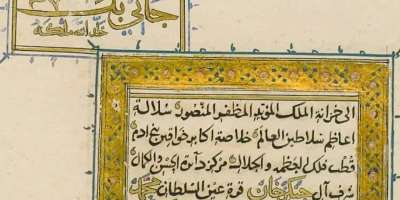 جانی بک
خلد الله ملكه
الى خزانة الملك المؤيد المظفر المنصور سلالة
اعاظم سلاطين العالم خلاصة اكابر خواقين بني ادم
قطب فلك العظمة والجلالة مركز دائرة الحسن والكمال
شرف آل جنكيزخان قرة عين السلطان محمد